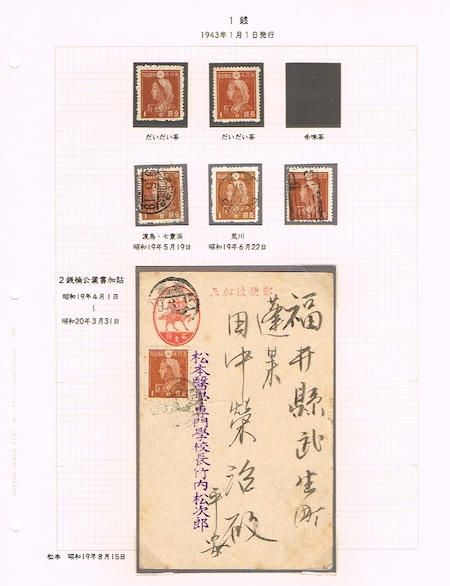 1 銭
1943年1月1日発行
だいだい茶
だいだい茶
赤味茶
渡島・七重浜
昭和19年5月19日
荒川
昭和19年6月22日
2銭楠公葉書加貼
昭和19年4月1日
~
昭和20年3月31日
郵便はがき
福井縣武生町
蓬莱
田中榮治殿
平安
松本醫學專門學校長竹内松次郎
松本 昭和19年8月15日